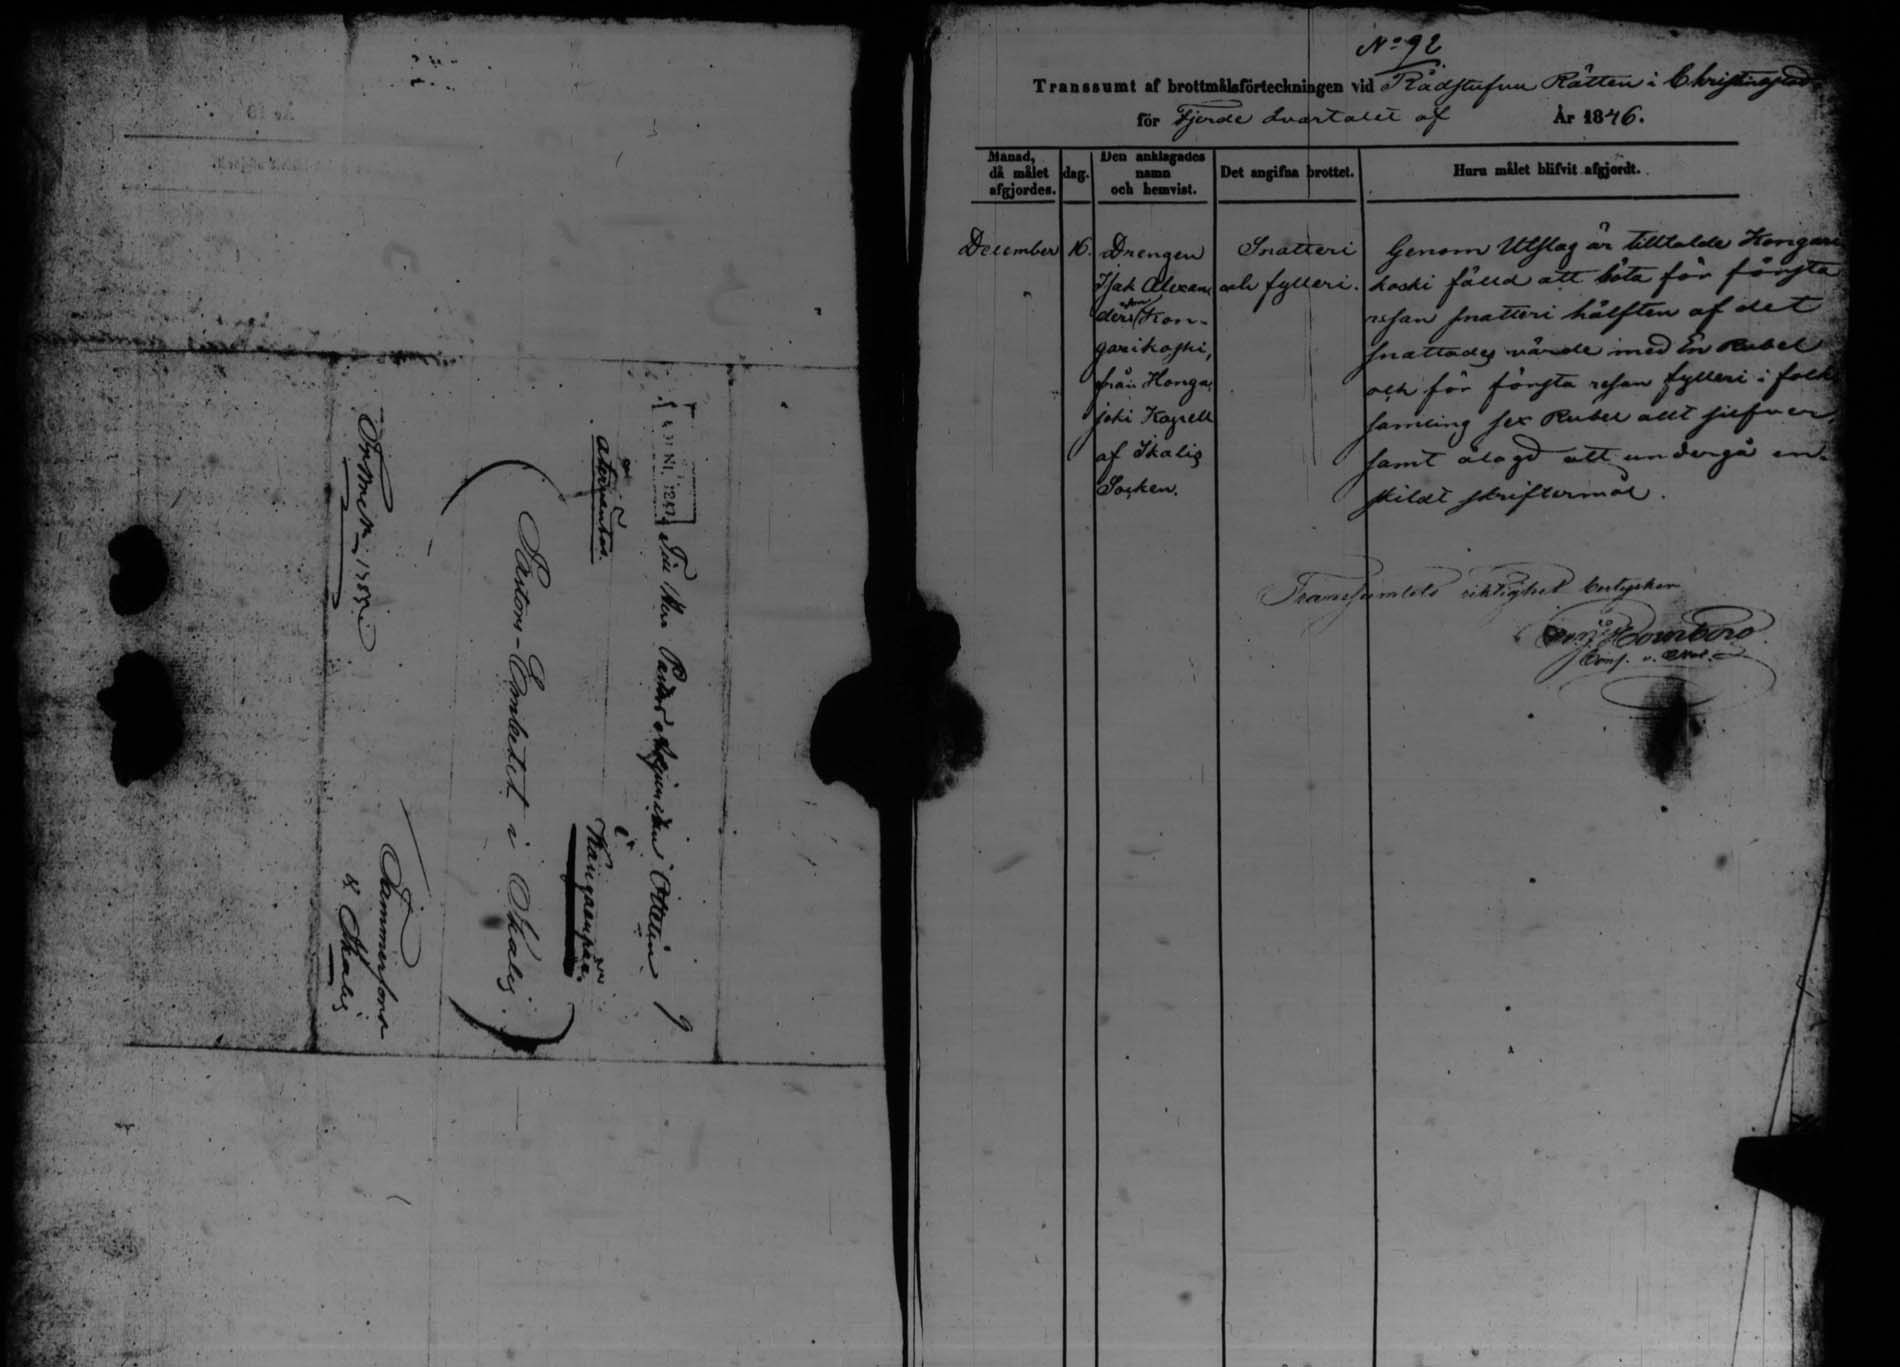 Till Herr Pastor
återsändes
Kangaenpää
Pastors-Embetet i Ikalis
Tammerfors
& Ikalis
No 92
Transsumt af brottmålsförteckningen vid Rådstufvu Rätten i Christinestad
för Fjerde Qvartalet af År 1846.
Månad, då målet afgjordes. dag. Den anklagades namn och hemvist. Det angifna brottet. Huru målet blifvit afgjordt.
December 16. Drengen
Isak Alexan
ders son Kon-
garikoski,
från Honga
joki Kapell
af Ikalis
Socken.
Snatteri
och fylleri.
Genom Utslag är tilltalde Kongari
koski fälld att böta för första
resan snatteri hälften af det
snattades värde med En Rubel
och för första resan fylleri i folk
samling sex Rubel allt silfver,
samt ålagd att undergå en-
skildt skriftermål.
Transsumtets riktighet betygker